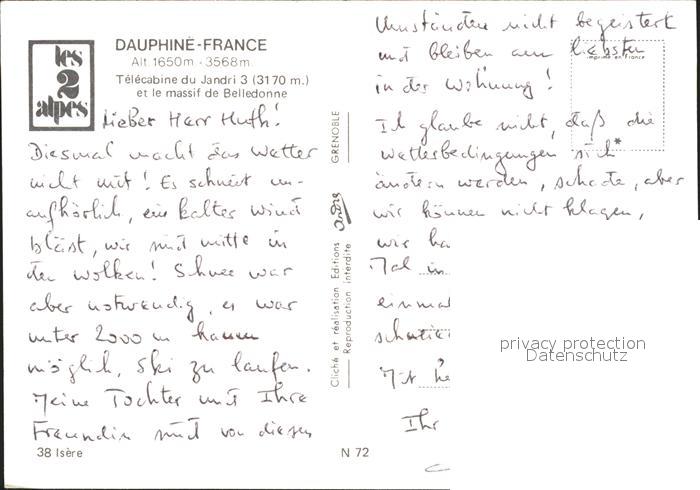 les
2
alpes
DAUPHINÉ-FRANCE
Alt. 1650m - 3568m.
Télécabine du Jandri 3 (3170 m.)
et le massif de Belledonne
Lieber Herr Huth!
Diesmal macht das Wetter
nicht mit! Es schneit un-
aufhörlich, ein kalter Wind
bläst, wir sind mitte in
den Wolken! Schnee war
aber notwendig, es war
unter 2000 m kaum
möglich, Ski zu laufen.
Meine Tochter und Ihre
Freundin sind von diesen
38 Isère
GRENOBLE
andré
Cliché et réalisation Editions
Reproduction interdite
N 72
Umständen nicht begeistert
und bleiben am liebsten
imprimé en France
in der Wohnung!
Ich glaube nicht, daß die
Wetterbedingungen sich*
ändern werden, schade, aber
wir können nicht klagen,
wir ha
Mal in
einmal
Mit he
Ihr
privacy protection
Datenschutz